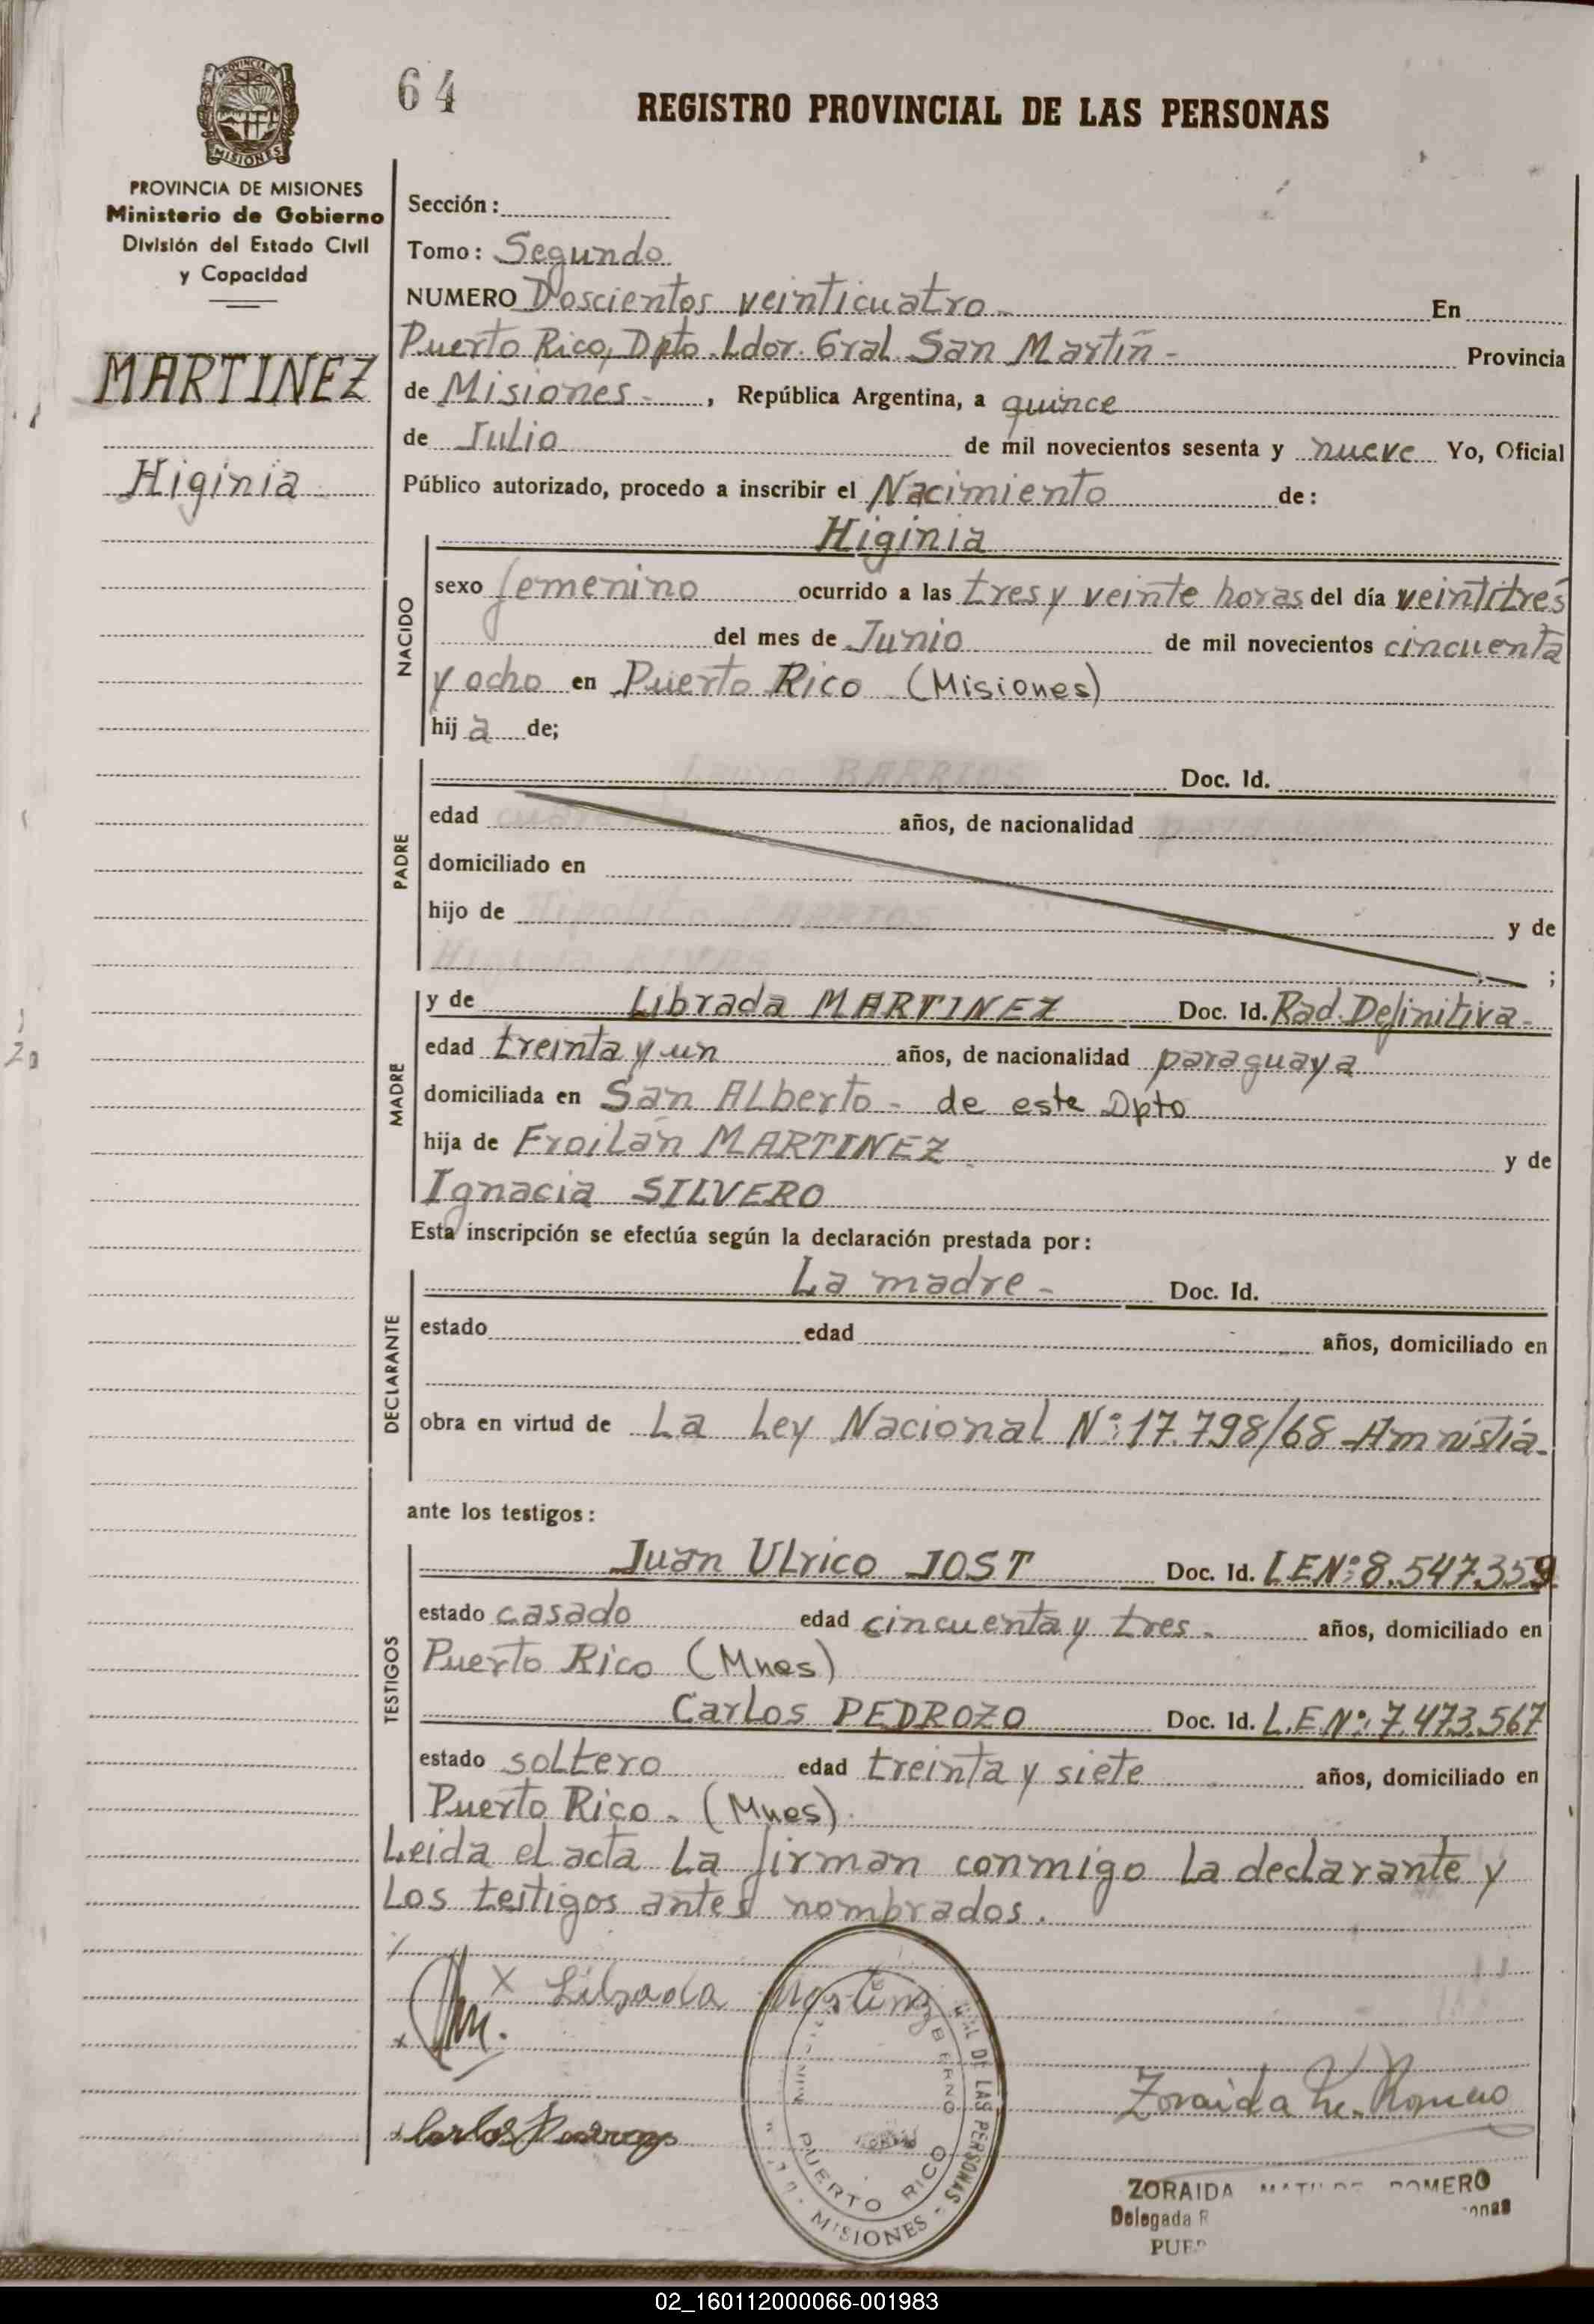 64
REGISTRO PROVINCIAL DE LAS PERSONAS
PROVINCIA DE MISIONES
PROVINCIA DE MISIONES
Ministerio de Gobierno
División del Estado Civil
y Capacidad
MARTINEZ
Higinia
Sección:
Tomo: Segundo
NUMERO Doscientos veinticuatro - En
Puerto Rico, Dpto. Ldor. Gral. San Martín - Provincia
de Misiones -, República Argentina, a quince
de Julio de mil novecientos sesenta y nueve Yo, Oficial
Público autorizado, procedo a inscribir el Nacimiento de:
Higinia
NACIDO
sexo femenino ocurrido a las tres y veinte horas del día veintitrés
del mes de Junio de mil novecientos cincuenta
y ocho en Puerto Rico (Misiones)
hij a de;
PADRE
BARRIOS Doc. Id.
edad años, de nacionalidad
domiciliado en
hijo de Hipolito BARRIOS y de
;
MADRE
y de Librada MARTINEZ Doc. Id. Rad. Definitiva -
edad treinta y un años, de nacionalidad paraguaya
domiciliada en San Alberto - de este Dpto
hija de Froilán MARTINEZ - y de
Ignacia SILVERO
Esta inscripción se efectúa según la declaración prestada por:
DECLARANTE
La madre - Doc. Id.
estado edad años, domiciliado en
obra en virtud de La Ley Nacional Nº: 17.798/68 Amnistía -
ante los testigos:
TESTIGOS
Juan Ulrico JOST Doc. Id. LE Nº: 8.547.359
estado casado edad cincuenta y tres - años, domiciliado en
Puerto Rico (Mnes)
Carlos PEDROZO Doc. Id. L.E Nº: 7.473.567
estado soltero edad treinta y siete años, domiciliado en
Puerto Rico - (Mnes).
Leida el acta la firman conmigo la declarante y
los testigos antes nombrados.
x Librada Martinez
Carlos Pedrozo
DE LAS PERSONAS - MISIONES
PUERTO RICO
Zoraida M. Romero
ZORAIDA MATILDE ROMERO
Delegada
02_160112000066-001983